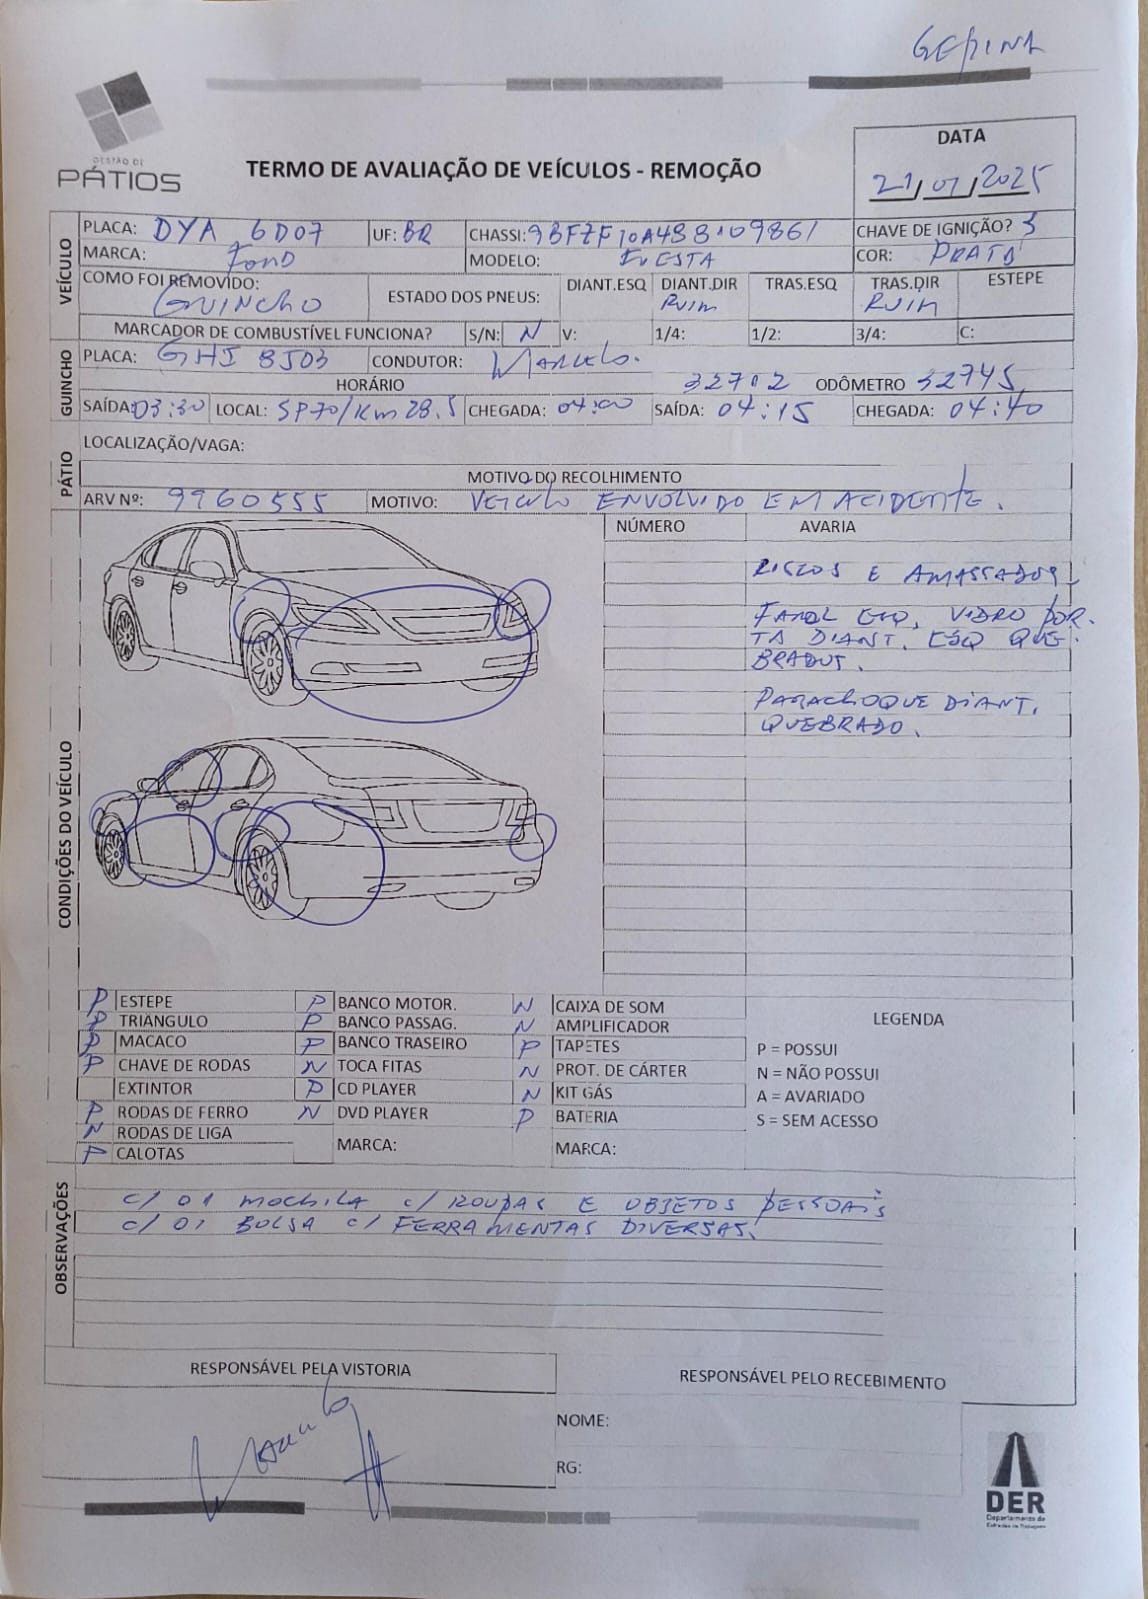 GESTÃO DE
PÁTIOS
TERMO DE AVALIAÇÃO DE VEÍCULOS - REMOÇÃO
DATA
21/01/2025
VEÍCULO
PLACA: DYA 6D07 UF: BR CHASSI: 9BFZF10A488109861 CHAVE DE IGNIÇÃO? S
MARCA: FORD MODELO: FIESTA COR: PRATA
COMO FOI REMOVIDO: GUINCHO ESTADO DOS PNEUS: DIANT.ESQ DIANT.DIR RUIM TRAS.ESQ TRAS.DIR RUIM ESTEPE
MARCADOR DE COMBUSTÍVEL FUNCIONA? S/N: N V: 1/4: 1/2: 3/4: C:
GUINCHO
PLACA: GHI 8J03 CONDUTOR: MARCELO.
HORÁRIO 32702 ODÔMETRO 32745
SAÍDA: 03:30 LOCAL: SP70/Km 28.5 CHEGADA: 04:00 SAÍDA: 04:15 CHEGADA: 04:40
PÁTIO
LOCALIZAÇÃO/VAGA:
MOTIVO DO RECOLHIMENTO
ARV Nº: 9960555 MOTIVO: VEICULO ENVOLVIDO EM ACIDENTE.
CONDIÇÕES DO VEÍCULO
NÚMERO AVARIA
RISCOS E AMASSADOS,
FAROL ESQ, VIDRO POR-
TA DIANT. ESQ QUE-
BRADOS.
PARACHOQUE DIANT.
QUEBRADO.
P ESTEPE P BANCO MOTOR. N CAIXA DE SOM
P TRIÂNGULO P BANCO PASSAG. N AMPLIFICADOR
P MACACO P BANCO TRASEIRO P TAPETES
P CHAVE DE RODAS N TOCA FITAS N PROT. DE CÁRTER
EXTINTOR P CD PLAYER N KIT GÁS
P RODAS DE FERRO N DVD PLAYER P BATERIA
N RODAS DE LIGA MARCA: MARCA:
P CALOTAS
LEGENDA
P = POSSUI
N = NÃO POSSUI
A = AVARIADO
S = SEM ACESSO
OBSERVAÇÕES
C/ 01 MOCHILA C/ ROUPAS E OBJETOS PESSOAIS
C/ 01 BOLSA C/ FERRAMENTAS DIVERSAS.
RESPONSÁVEL PELA VISTORIA
RESPONSÁVEL PELO RECEBIMENTO
NOME:
RG:
DER
Departamento de
Estradas de Rodagem